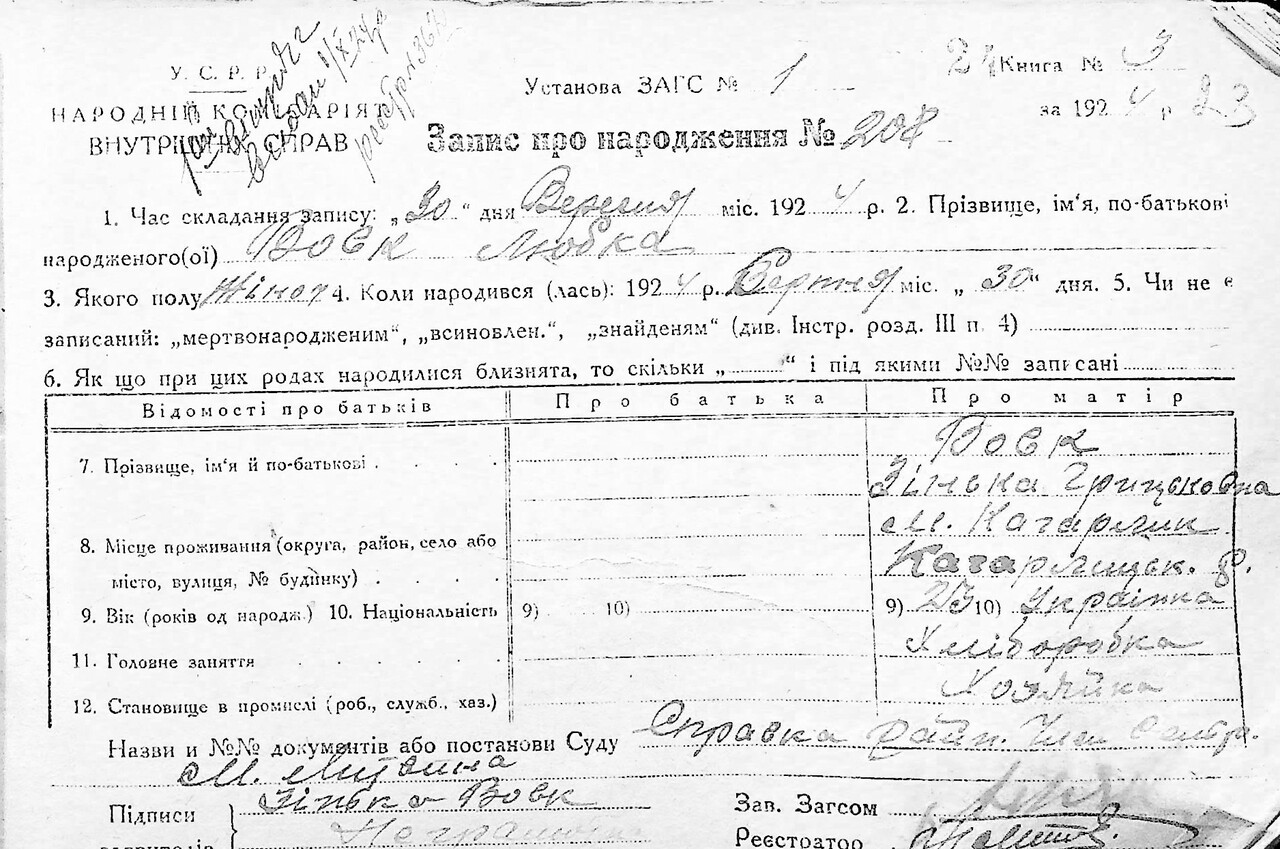 У. С. Р. Р.
НАРОДНІЙ КОМІСАРІЯТ
ВНУТРІШНІХ СПРАВ
Установа ЗАГС № 1
24 Книга № 3
за 1924 р. 23
Запис про народження № 208
1. Час складання запису: „30“ дня Вересня міс. 1924 р. 2. Прізвище, ім'я, по-батькові
народженого(ої) Вовк Любка
3. Якого полу Жіноч 4. Коли народився (лась): 1924 р. Вертня міс. „30“ дня. 5. Чи не є
записаний: „мертвонародженим“, „всиновлен.“, „знайденям“ (див. Інстр. розд. III п. 4)
6. Як що при цих родах народилися близнята, то скільки „ “ і під якими №№ записані
Відомості про батьків Про батька Про матір
7. Прізвище, ім'я й по-батькові Вовк
Зінька Грицьковна
8. Місце проживання (округа, район, село або м. Кагарлик
місто, вулиця, № будинку) Кагарлицьк. р.
9. Вік (років од народж.) 10. Національність 9) 10) 9) 23 10) Українка
11. Головне заняття Хліборобка
12. Становище в промислі (роб., служб., хаз.) Хозяйка
Назви и №№ документів або постанови Суду Справка
М. Литвина
Підписи Зінька Вовк Зав. Загсом
Неграмотна
Реєстратор